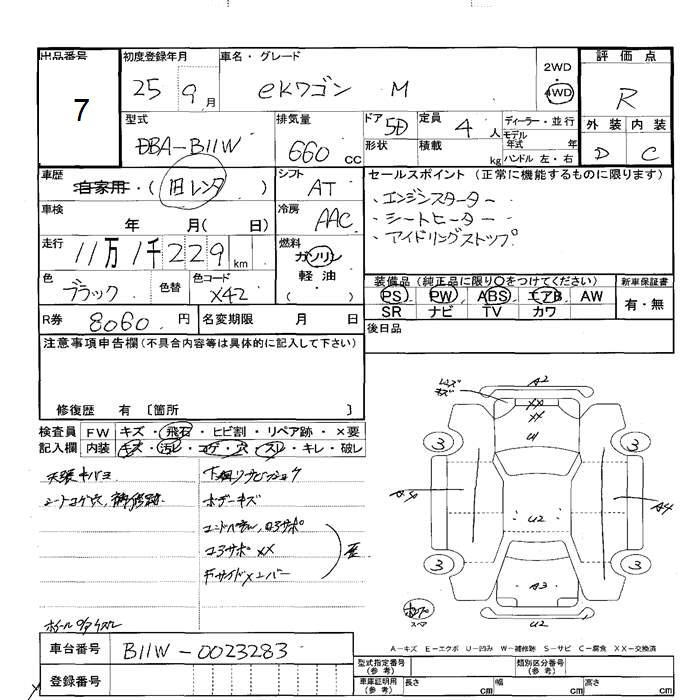 出品番号
7
初度登録年月
25 9月
車名・グレード
eKワゴン M
2WD
・
4WD
評価点
R
外装 内装
D C
型式
DBA-B11W
排気量
660 cc
ドア 5D
形状
定員 4人
積載 kg
ディーラー・並行
モデル年式 年
ハンドル 左・右
車歴
自家用・(旧レンタ)
シフト
AT
セールスポイント(正常に機能するものに限ります)
・エンジンスターター
・シートヒーター
・アイドリングストップ
車検
年 月( 日)
冷房
AAC
走行
11万1千229km
燃料
ガソリン
軽油
( )
色
ブラック
色替
色コード
X42
装備品(純正品に限り○をつけてください)
PS PW ABS エアB AW
SR ナビ TV カワ
新車保証書
有・無
R券
8060円
名変期限 月 日
後日品
注意事項申告欄(不具合内容等は具体的に記入して下さい)
修復歴 有〔箇所 〕
検査員記入欄
FW キズ・飛石・ヒビ割・リペア跡・×要
内装 キズ・汚レ・コゲ・穴・スレ・キレ・破レ
天張キバミ
シートコゲ穴,補修跡
ボデーキズ
コアサポXX
Fサイドメンバー
歪
レンズキズ
A2
XX
XX
U1
3 3
A4
U2
A4
3 3
A3
U2
A-キズ E-エクボ U-凹み W-補修跡 S-サビ C-腐食 XX-交換済
車台番号
B11W-0023283
登録番号
型式指定番号(参考)
類別区分番号(参考)
車庫証明用(参考)
長さ cm 幅 cm 高さ cm